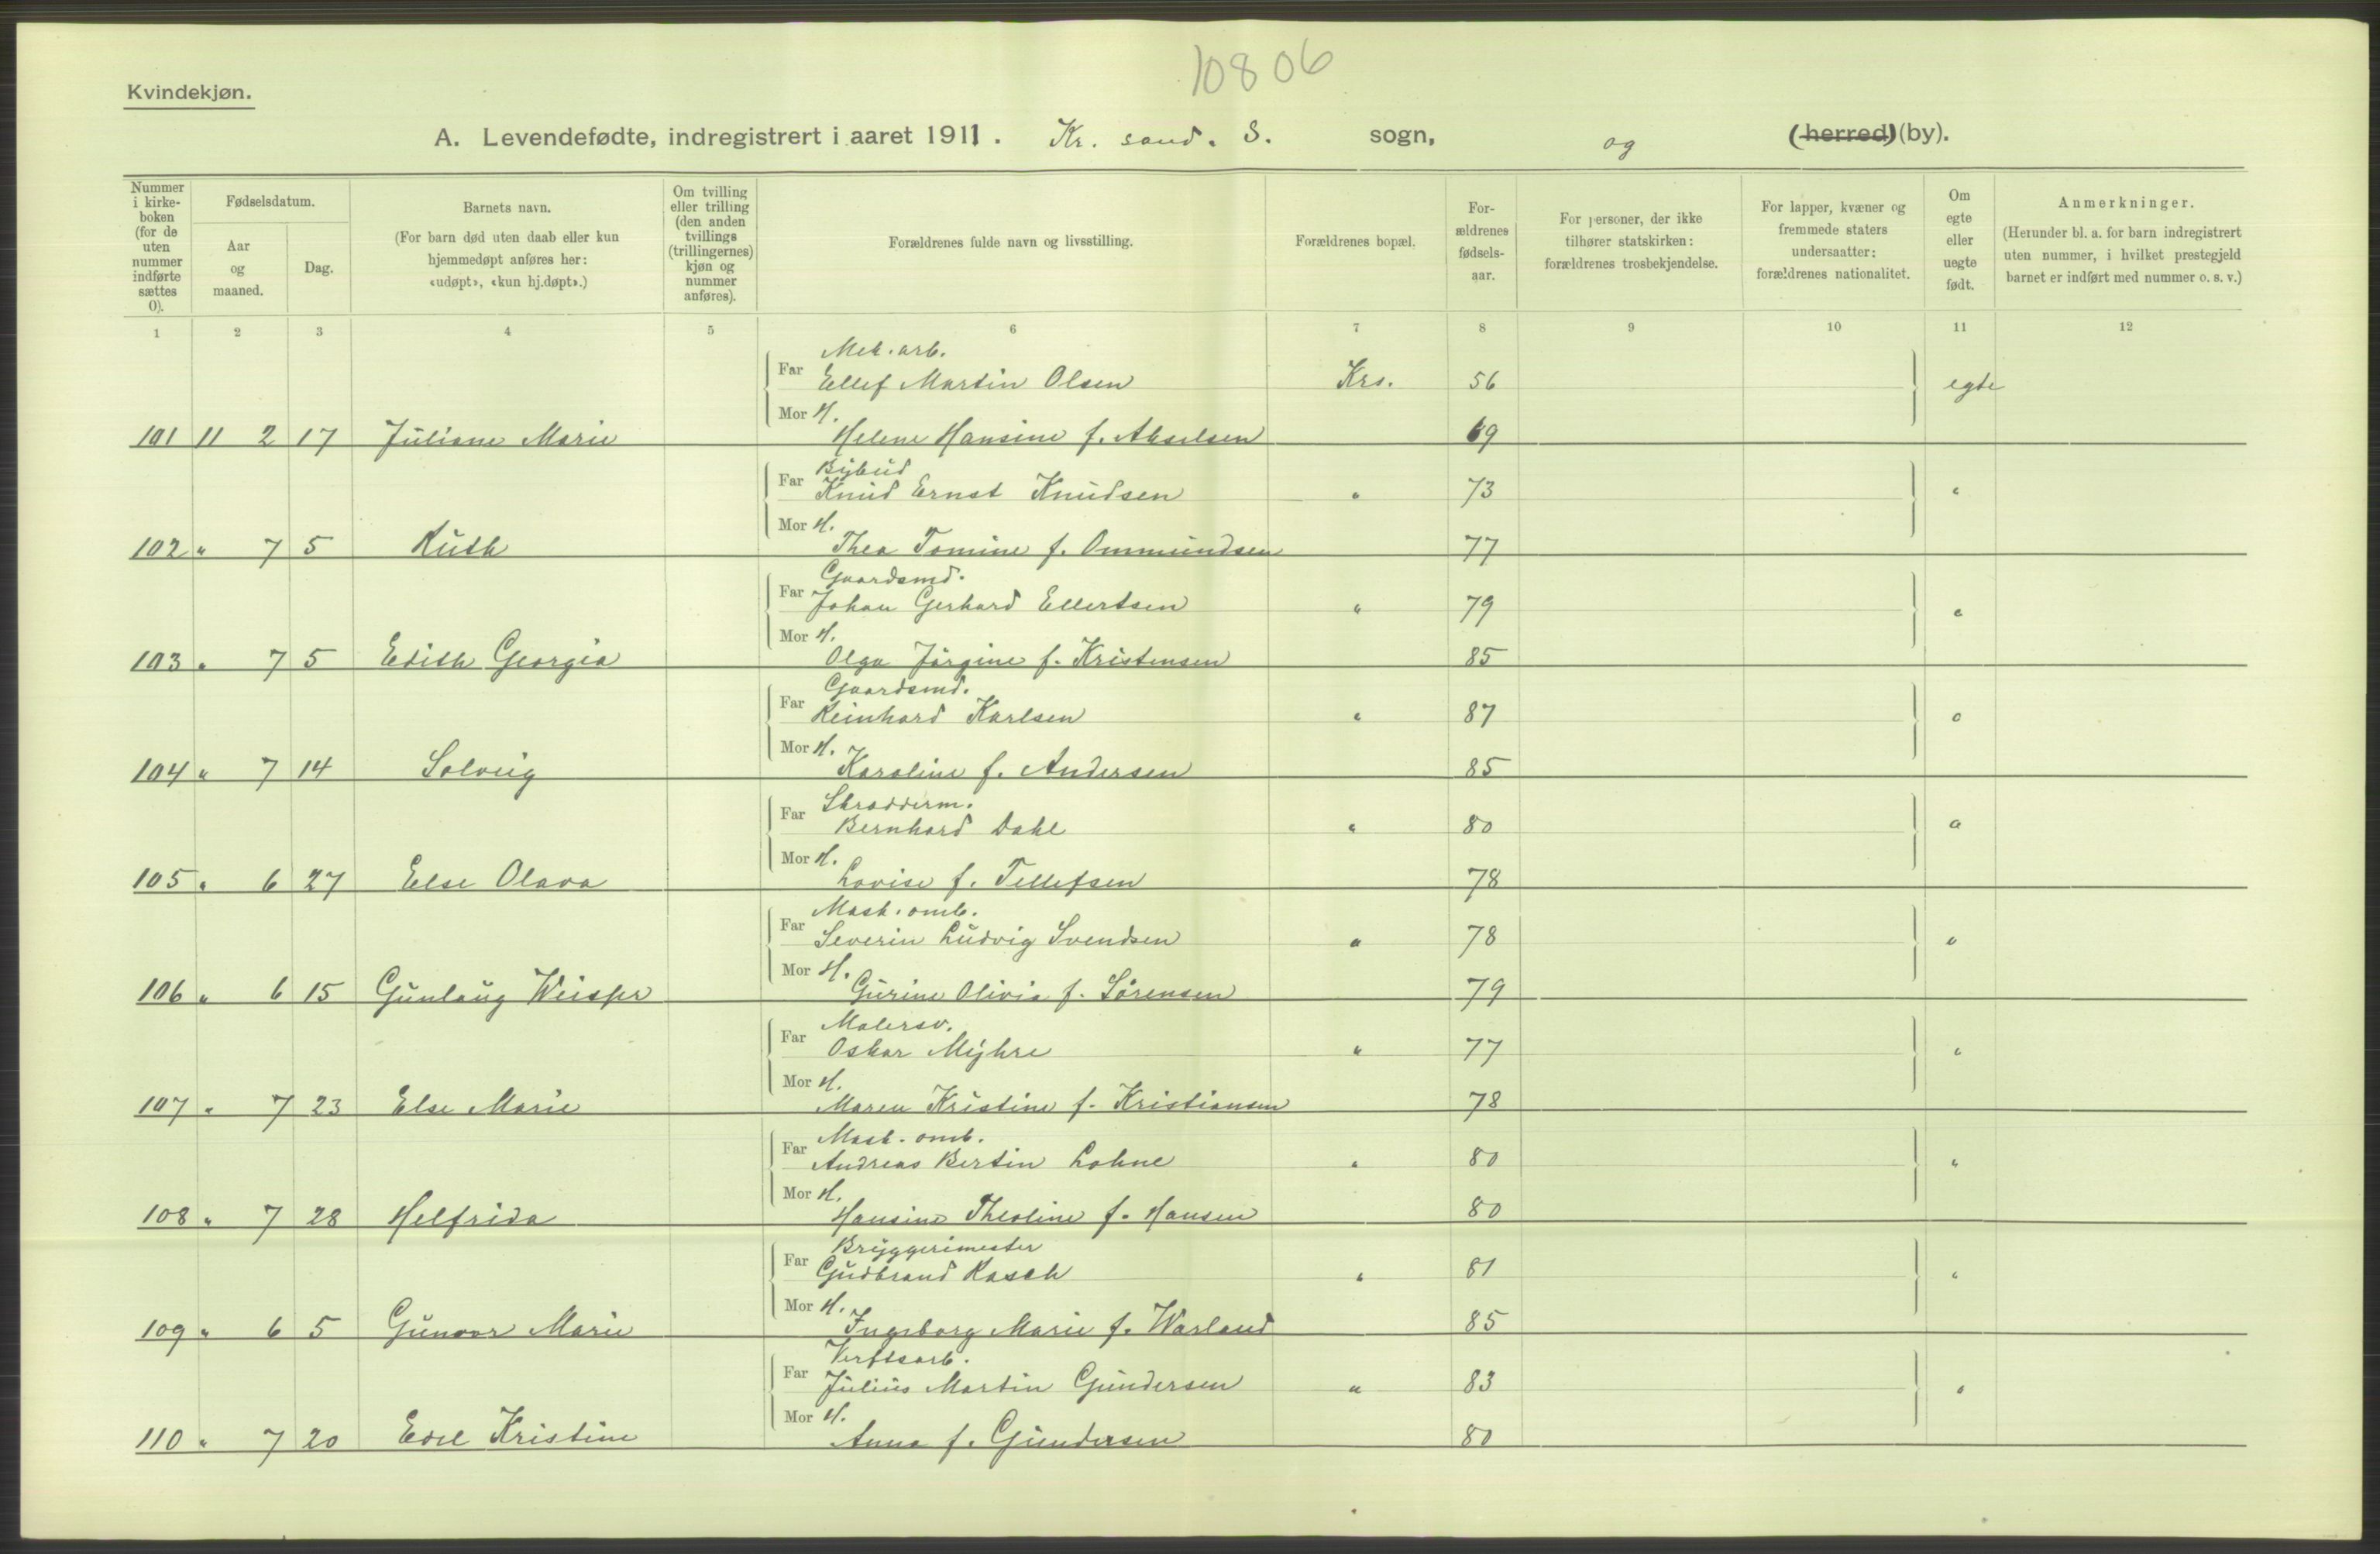 10806
Kvindekjøn.
A. Levendefødte, indregistrert i aaret 1911. Kr. sand. S. sogn, og (herred) (by).
Nummer i kirke-boken (for de uten nummer indførte sættes 0).
Fødselsdatum.
Aar og maaned.
Dag.
Barnets navn.
(For barn død uten daab eller kun hjemmedøpt anføres her: «udøpt», «kun hj.døpt».)
Om tvilling eller trilling (den anden tvillings (trillingernes) kjøn og nummer anføres).
Forældrenes fulde navn og livsstilling.
Forældrenes bopæl.
For-ældrenes fødsels-aar.
For personer, der ikke tilhører statskirken: forældrenes trosbekjendelse.
For lapper, kvæner og fremmede staters undersaatter: forældrenes nationalitet.
Om egte eller uegte født.
Anmerkninger.
(Herunder bl. a. for barn indregistrert uten nummer, i hvilket prestegjeld barnet er indført med nummer o. s. v.)
1 2 3 4 5 6 7 8 9 10 11 12
Mek. arb.
Far Ellef Martin Olsen Krs. 56 egte
Mor H.
101 11 2 17 Juliane Marie Helene Hansine f. Akselsen 69
Bybud
Far Knud Ernst Knudsen " 73 "
Mor H.
102 " 7 5 Ruth Thea Tomine f. Ommundsen 77
Gaardsmd.
Far Johan Gerhard Ellertsen " 79 "
Mor H.
103 " 7 5 Edith Georgia Olga Jørgine f. Kristensen 85
Gaardsmd.
Far Reinhard Karlsen " 87 "
Mor H.
104 " 7 14 Solveig Karoline f. Andersen 85
Skradderm.
Far Bernhard Dahl " 80 "
Mor H.
105 " 6 27 Else Olava Lovise f. Tellefsen 78
Mask. omb.
Far Severin Ludvig Svendsen " 78 "
Mor H.
106 " 6 15 Gunlaug Gurine Olivia f. Sørensen 79
Malersv.
Far Oskar Myhre " 77 "
Mor H.
107 " 7 23 Else Marie Maren Kristine f. Kristiansen 78
Mask. omb.
Far Andreas Bertin Lohne " 80 "
Mor H.
108 " 7 28 Helfrida Hansine Theoline f. Hansen 80
Bryggerimester
Far Gudbrand Rasch " 81 "
Mor H.
109 " 6 5 Gunvor Marie Ingeborg Marie f. Warland 85
Verftsarb.
Far Julius Martin Gundersen " 83 "
Mor H.
110 " 7 20 Edel Kristine Anna f. Gundersen 80